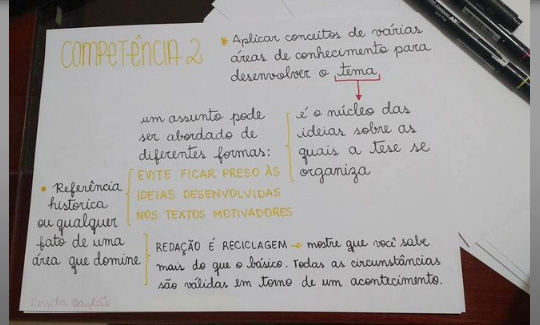 COMPETÊNCIA 2
* Aplicar conceitos de várias
áreas de conhecimento para
desenvolver o tema
é o núcleo das
ideias sobre as
quais a tese se
organiza
um assunto pode
ser abordado de
diferentes formas:
EVITE FICAR PRESO ÀS
IDEIAS DESENVOLVIDAS
NOS TEXTOS MOTIVADORES
* Referência
histórica
ou qualquer
fato de uma
área que domine
REDAÇÃO É RECICLAGEM → mostre que você sabe
mais do que o básico. Todas as circunstâncias
são válidas em torno de um acontecimento.